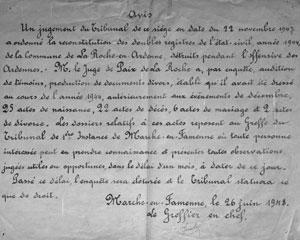 Avis
Un jugement du Tribunal de ce siège en date du 22 novembre 1947
a ordonné la reconstitution des doubles registres de l'état-civil, année 1944,
de la commune de La Roche-en-Ardenne, détruits pendant l'offensive des
Ardennes. M. le Juge de Paix de La Roche a, par enquête, audition
de témoins, production de documents divers, établi qu'il avait été dressé
au cours de l'année 1944, antérieurement aux événements de décembre,
25 actes de naissance, 22 actes de décès, 6 actes de mariage et 2 actes
de divorce. Les dossiers relatifs à ces actes reposent au Greffe du
Tribunal de 1ère Instance de Marche-en-Famenne où toute personne
intéressée peut en prendre connaissance et présenter toutes observations
jugées utiles ou opportunes, dans le délai d'un mois, à dater de ce jour.
Passé ce délai, l'enquête sera clôturée et le Tribunal statuera ce
que de droit.
Marche-en-Famenne, le 26 juin 1948.
Le Greffier en chef,